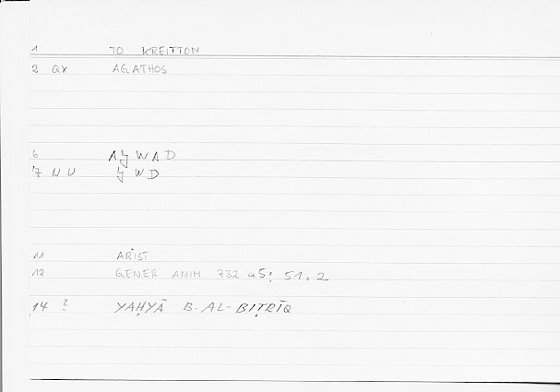 1 TO KREITTON
2 QY AGATHOS
6 AJWAD
7 NU JWD
11 ARIST
12 GENER ANIM 732 a5; 51.2
14 ? YAḤYĀ B-AL-BIṬRĪQ